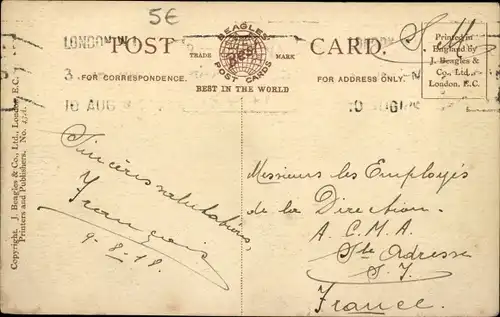 5€
LONDON W
POST CARD.
BEAGLES'
POST CARDS
TRADE MARK
BEST IN THE WORLD
FOR CORRESPONDENCE.
FOR ADDRESS ONLY.
3
10 AUG
10 AUG 18
Printed in
England by
J. Beagles &
Co., Ltd.,
London, E.C.
Copyright. J. Beagles & Co., Ltd., London, E.C.
Printers and Publishers. No.
Sincères salutations,
François
9-8-18.
Messieurs les Employés
de la Direction
A.C.M.A.
Ste Adresse
S. I.
France.